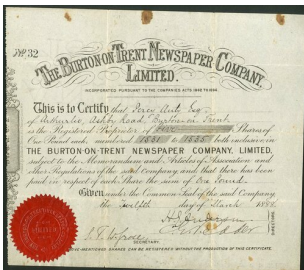 No. 32
THE BURTON-ON-TRENT NEWSPAPER COMPANY,
LIMITED.
INCORPORATED PURSUANT TO THE COMPANIES ACTS 1862 TO 1886.
This is to Certify that Percy Ault Esq
of Ashby Road, Burton on Trent
is the Registered Proprietor of Shares of
One Pound each, numbered 1531 to 1535 both inclusive, in
THE BURTON-ON-TRENT NEWSPAPER COMPANY, LIMITED,
subject to the Memorandum and Articles of Association and
other Regulations of the said Company, and that there has been
paid in respect of each Share the sum of One Pound.
Given under the Common Seal of the said Company,
the Twelfth day of March 188
SECRETARY.
ABOVE-MENTIONED SHARES CAN BE REGISTERED WITHOUT THE PRODUCTION OF THIS CERTIFICATE.